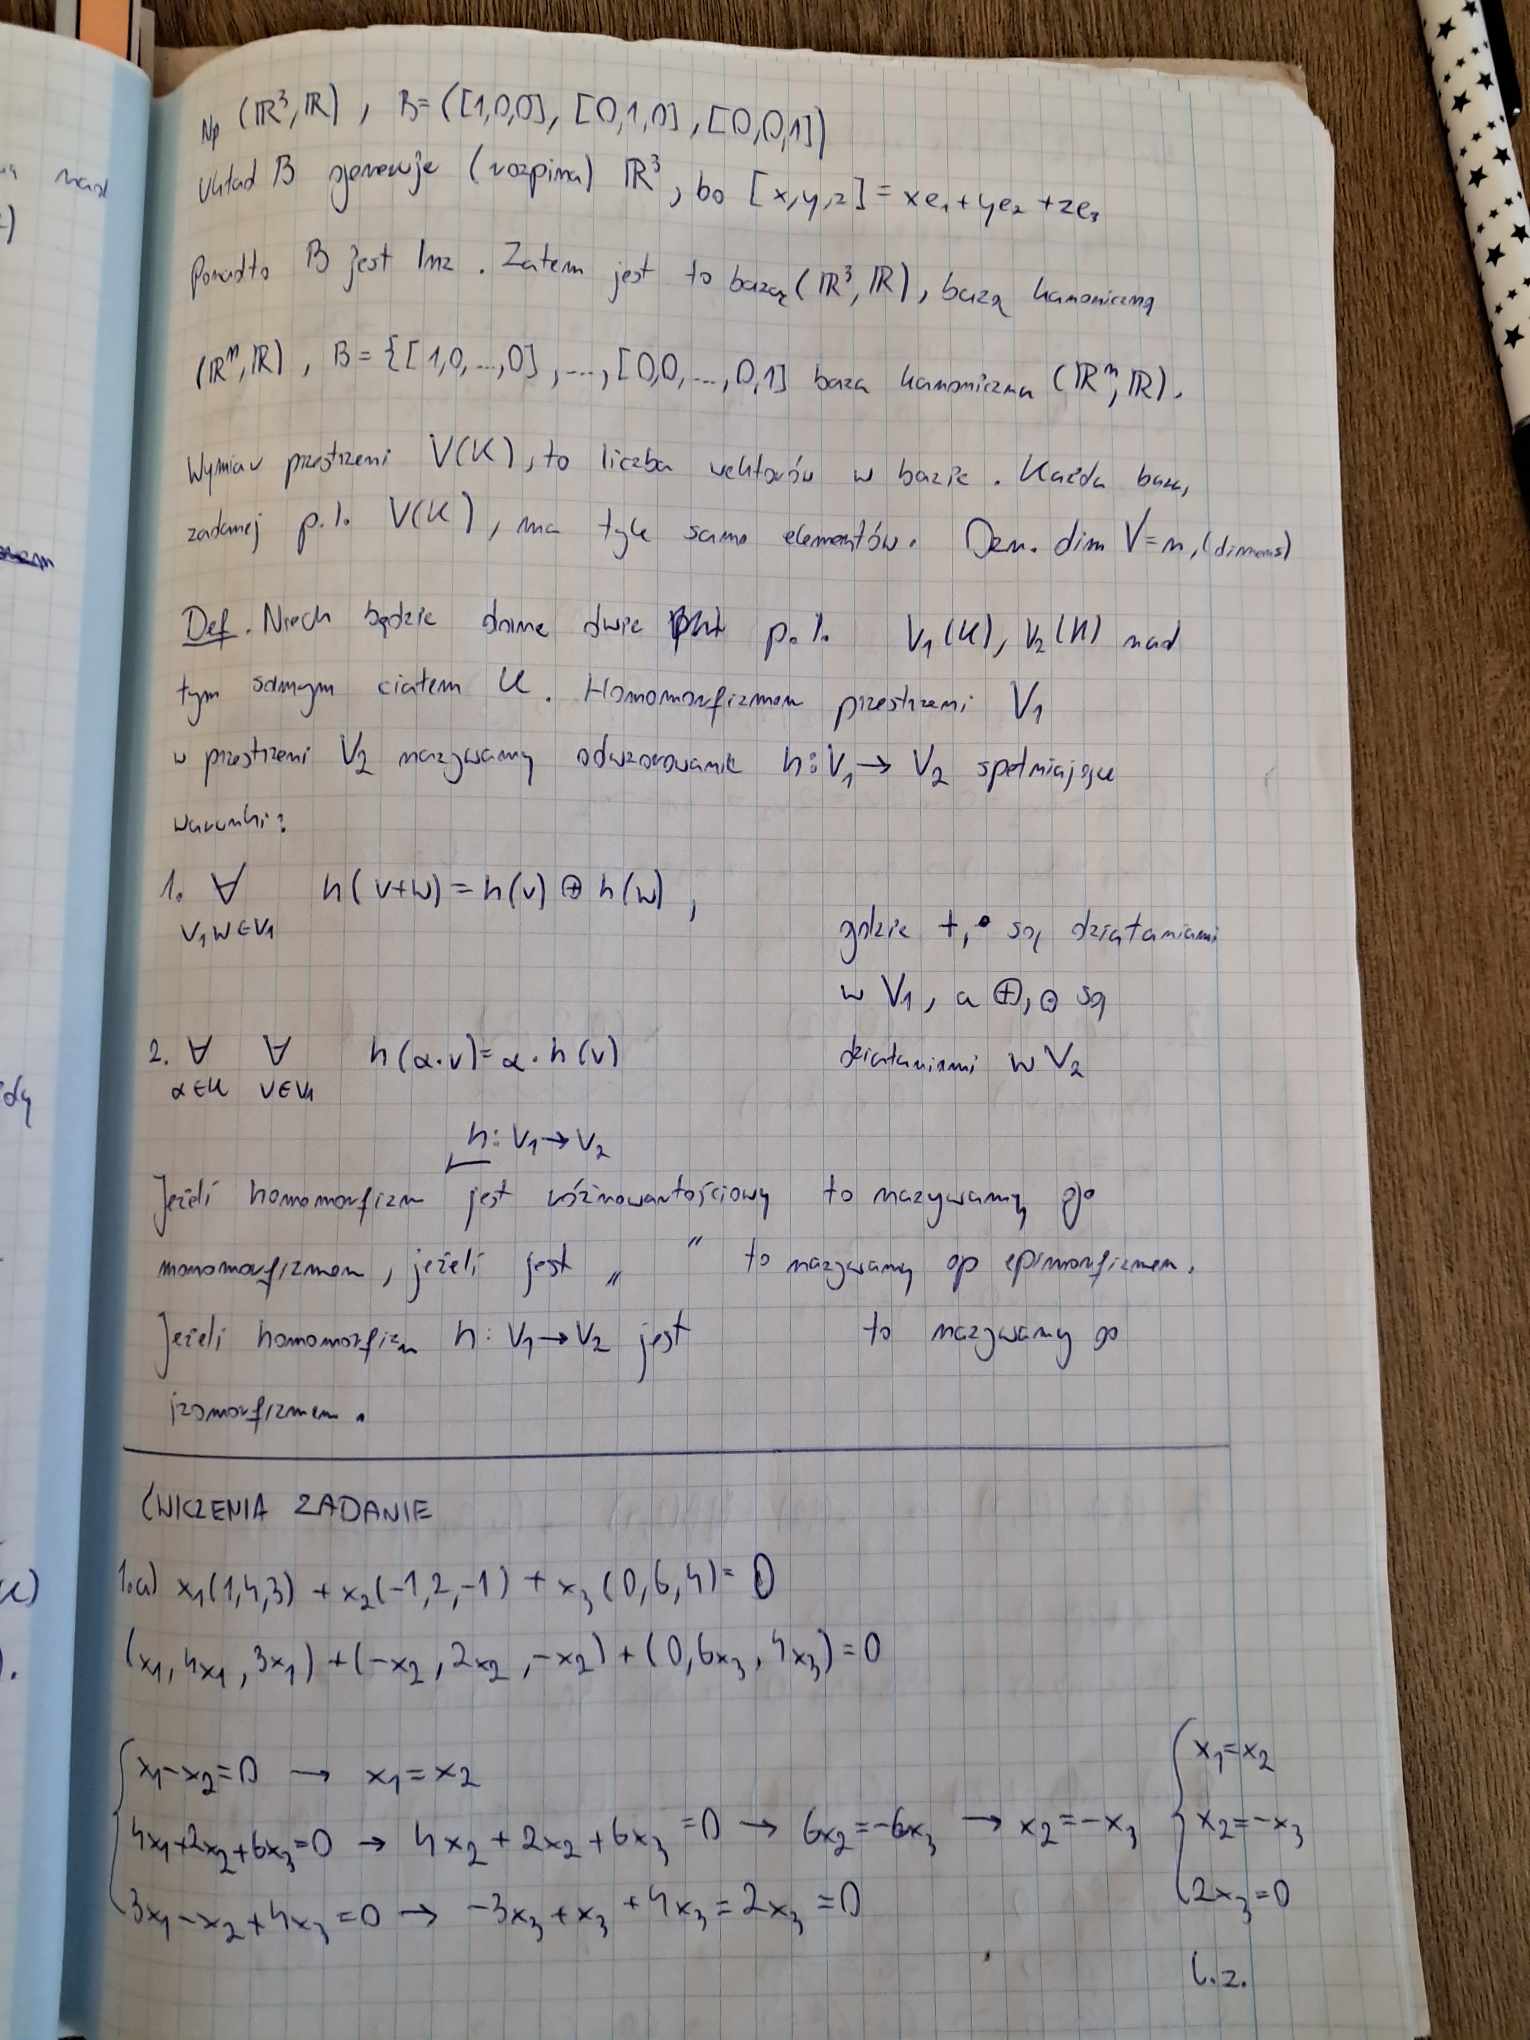 Np (ℝ³, ℝ), B=([1,0,0], [0,1,0], [0,0,1])
układ B generuje (rozpina) ℝ³, bo [x,y,z] = xe₁+ye₂+ze₃
Ponadto B jest lnz. Zatem jest to bazą (ℝ³, ℝ), bazą kanoniczną
(ℝⁿ, ℝ), B={[1,0,...,0],...,[0,0,...,0,1] baza kanoniczna (ℝⁿ, ℝ).
Wymiar przestrzeni V(K), to liczba wektorów w bazie. Każda baza,
zadanej p.l. V(K), ma tyle samo elementów. Ozn. dim V=n, (dimens)
Def. Niech będzie dane dwie p.l. V₁(K), V₂(K) nad
tym samym ciałem K. Homomorfizmem przestrzeni V₁
w przestrzeni V₂ nazywamy odwzorowanie h: V₁→V₂ spełniające
warunki:
1. ∀ h(v+w)=h(v)⊕h(w),
V₁W∈V₁
gdzie +,• są działaniami
w V₁, a ⊕,⊙ są
2. ∀ ∀ h(α·v)=α·h(v) działaniami w V₂
α∈K V∈V₁
h: V₁→V₂
Jeżeli homomorfizm jest różnowartościowy to nazywamy go
monomorfizmem, jeżeli jest „ ” to nazywamy go epimorfizmem.
Jeżeli homomorfizm h: V₁→V₂ jest to nazywamy go
izomorfizmem.
ĆWICZENIA ZADANIE
1.a) x₁(1,4,3) + x₂(-1,2,-1) + x₃(0,6,4)=0
(x₁, 4x₁, 3x₁)+(-x₂, 2x₂, -x₂)+(0,6x₃, 4x₃)=0
x₁-x₂=0 → x₁=x₂ x₁=x₂
4x₁+2x₂+6x₃=0 → 4x₂+2x₂+6x₃=0 → 6x₂=-6x₃ → x₂=-x₃ x₂=-x₃
3x₁-x₂+4x₃=0 → -3x₃+x₃+4x₃=2x₃=0 2x₃=0
l.z.